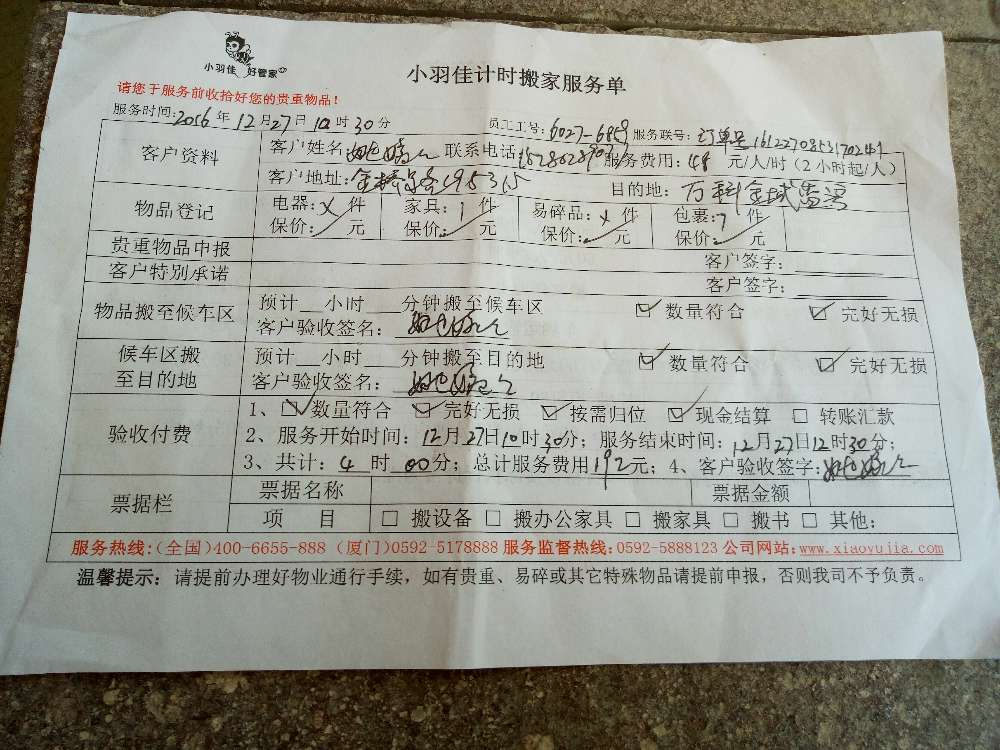 小羽佳 好管家
小羽佳计时搬家服务单
请您于服务前收拾好您的贵重物品！
服务时间：2016年12月27日10时30分 员工工号：6027-6859 服务联号：订单号
客户资料 客户姓名： 联系电话 服务费用：48元/人/时（2小时起/人）
客户地址：金桥 目的地：万科金域蓝湾
物品登记 电器：件 家具：1件 易碎品：件 包裹：7件
保价：元 保价：元 保价：元 保价：元
贵重物品申报 客户签字：
客户特别承诺 客户签字：
物品搬至候车区 预计__小时___分钟搬至候车区 ☑数量符合 ☑完好无损
客户验收签名：
候车区搬至目的地 预计__小时___分钟搬至目的地 ☑数量符合 ☑完好无损
客户验收签名：
验收付费 1、☑数量符合 ☑完好无损 ☑按需归位 ☑现金结算 □转账汇款
2、服务开始时间：12月27日10时30分；服务结束时间：12月27日12时30分；
3、共计：4时00分；总计服务费用192元；4、客户验收签字：
票据栏 票据名称 票据金额
项 目 □搬设备 □搬办公家具 □搬家具 □搬书 □其他：
服务热线：（全国）400-6655-888（厦门）0592-5178888 服务监督热线：0592-5888123 公司网站：www.xiaoyujia.com
温馨提示：请提前办理好物业通行手续，如有贵重、易碎或其它特殊物品请提前申报，否则我司不予负责。